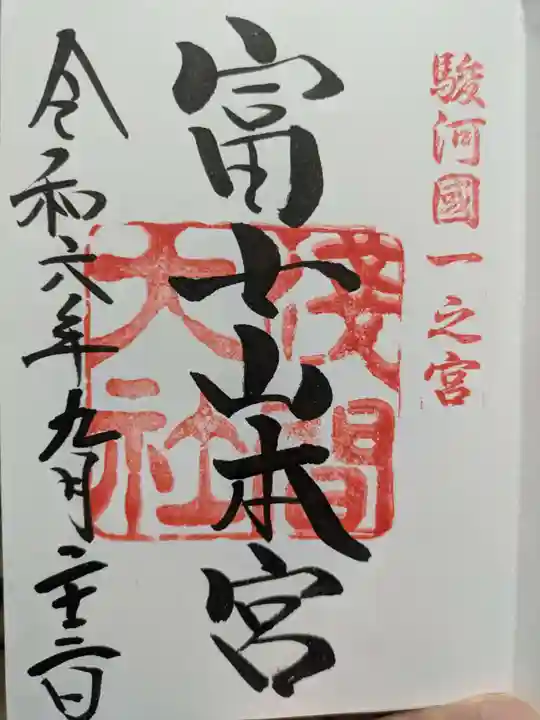 駿河國一之宮
富士山本宮
浅間
大社
令和六年九月二十三日